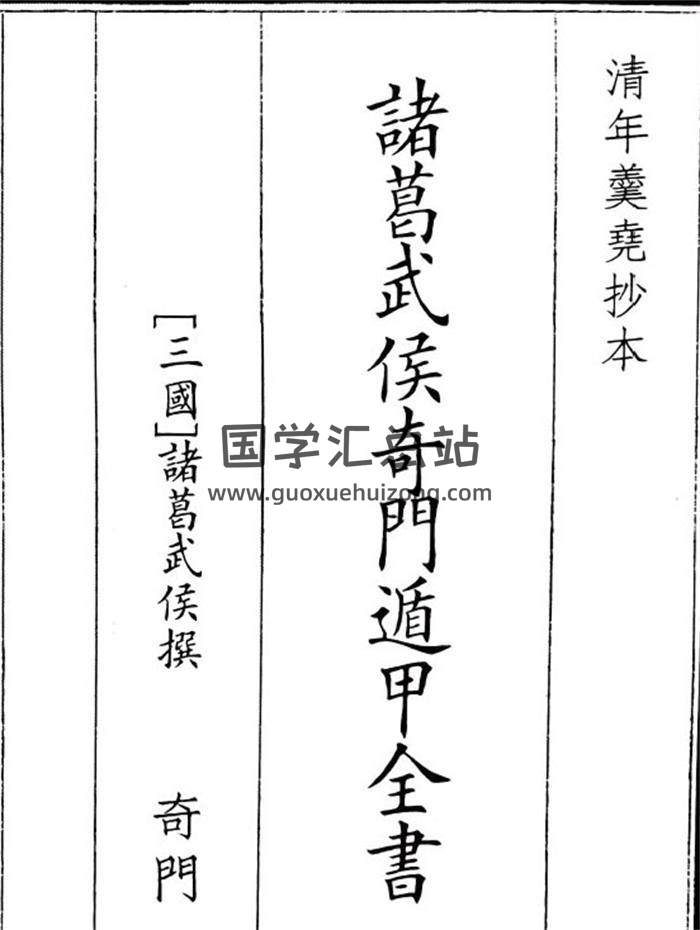 清年羹堯抄本
諸葛武侯奇門遁甲全書
[三國]諸葛武侯撰
奇門
国学汇总站
www.guoxuehuizong.com